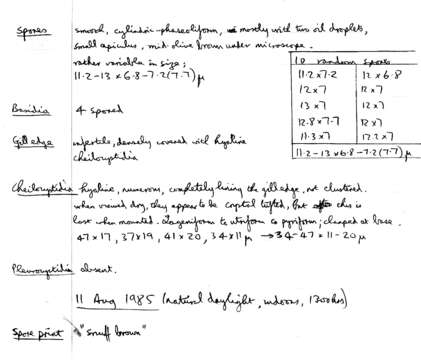 Spores smooth, cylindric-phaseoliform, mostly with two oil droplets,
small apiculus, mid-olive brown under microscope.
rather variable in size;
11.2-13 x 6.8-7.2(7.7) μ
10 random spores
11.2 x 7.2 12 x 6.8
12 x 7 12 x 7
13 x 7 12 x 7
12.8 x 7.7 12 x 7
11.3 x 7 12.2 x 7
11.2-13 x 6.8-7.2(7.7) μ
Basidia 4 spored
Gill edge infertile, densely covered with hyaline
cheilocystidia
Cheilocystidia hyaline, numerous, completely lining the gill edge, not clustered.
when viewed dry, they appear to be crystal tufted, but this is
lost when mounted. Lageniform to utriform to pyriform; clamped at base.
47 x 17, 37 x 19, 41 x 20, 34 x 11 μ → 34-47 x 11-20 μ
Pleurocystidia absent.
11 Aug 1985 (natural daylight, indoors, 1300hrs)
Spore print "Snuff brown"